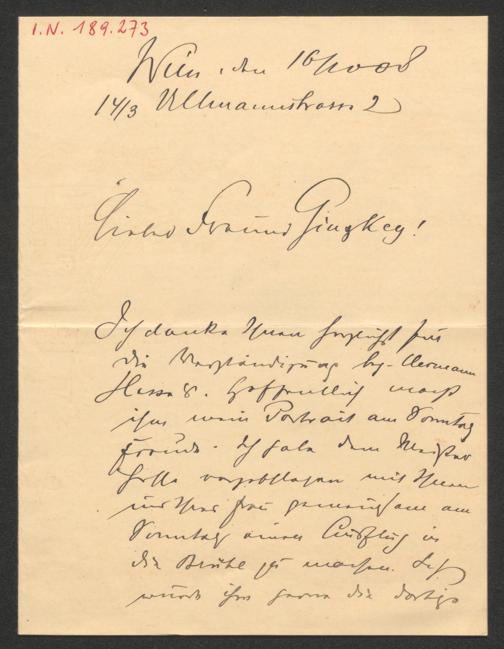 I.N. 189.273
Wien, den 16/XI 08
14/3 Ullmannstrasse 2
Lieber Freund Ginzkey!
Ich danke Ihnen herzlichst für
die Verständigung bez. Hermann
Hesse's. Hoffentlich macht
ihm mein Portrait am Sonntag
Freude. Ich habe dem Meister
Hesse vorgeschlagen mit Ihnen
und Ihrer Frau gemeinsam am
Sonntag einen Ausflug in
die Brühl zu machen. Ich
würde ihm gerne die dortige